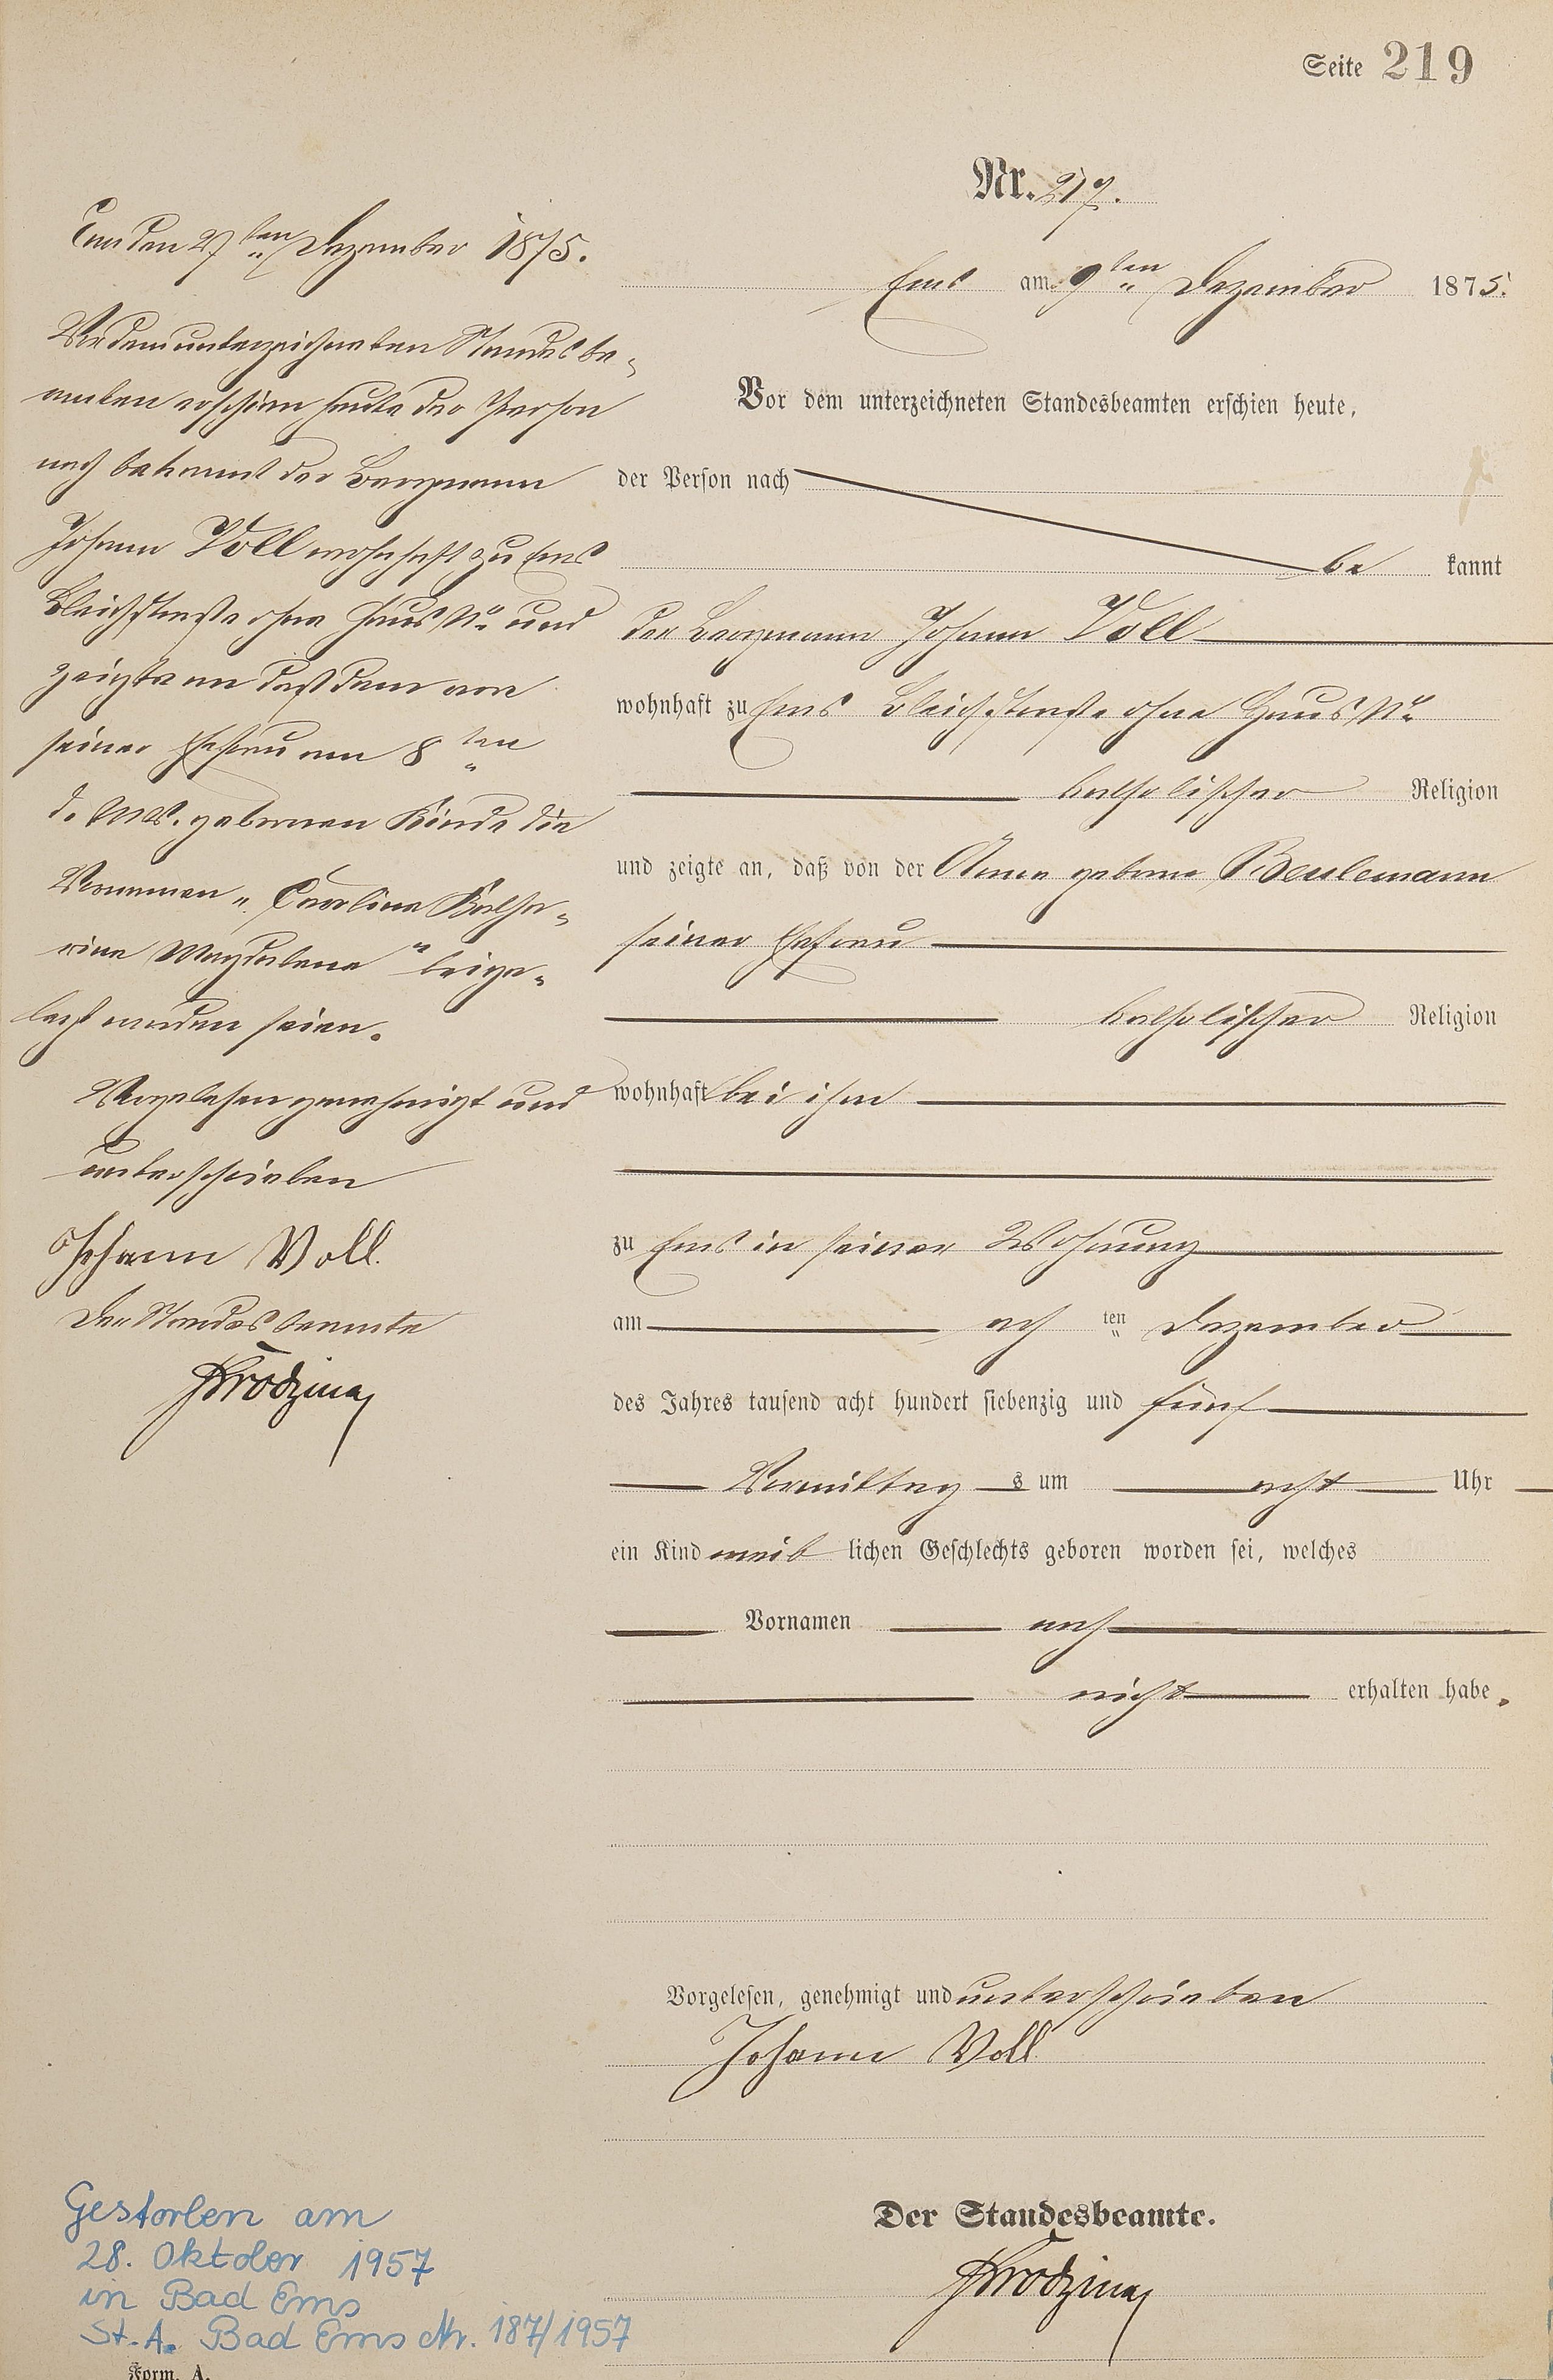 Seite 219
Nr. 217.
Ems am 9ten Dezember 1875.
Vor dem unterzeichneten Standesbeamten erschien heute,
der Person nach
be kannt
der Bergmann Johann Voll
wohnhaft zu Ems Bleichstraße ohne Haus No
katholischer Religion
und zeigte an, daß von der Anna geborne Beulemann
seiner Ehefrau
katholischer Religion
wohnhaft bei ihm
zu Ems in seiner Wohnung
am ach ten Dezember
des Jahres tausend acht hundert siebenzig und fünf
Vormittag s um acht Uhr
ein Kind weib lichen Geschlechts geboren worden sei, welches
Vornamen noch
nicht erhalten habe.
Vorgelesen, genehmigt und unterschrieben
Johann Voll
Der Standesbeamte.
Ems den 27ten Dezember 1875.
Vor dem unterzeichneten Standesbe-
amten erschien heute der Person
nach bekannt der Bergmann
Johann Voll wohnhaft zu Ems
Bleichstraße ohne Haus No und
zeigte an daß dem von
seiner Ehefrau am 8ten
d. Mts. gebornen Kinde die
Vornamen „Caroline Katha-
rina Magdalena" beige-
legt worden seien.
Vorgelesen genehmigt und
unterschrieben
Johann Voll.
Der Standesbeamte
Gestorben am
28. Oktober 1957
in Bad Ems
St. A. Bad Ems Nr. 187/1957
Form. A.